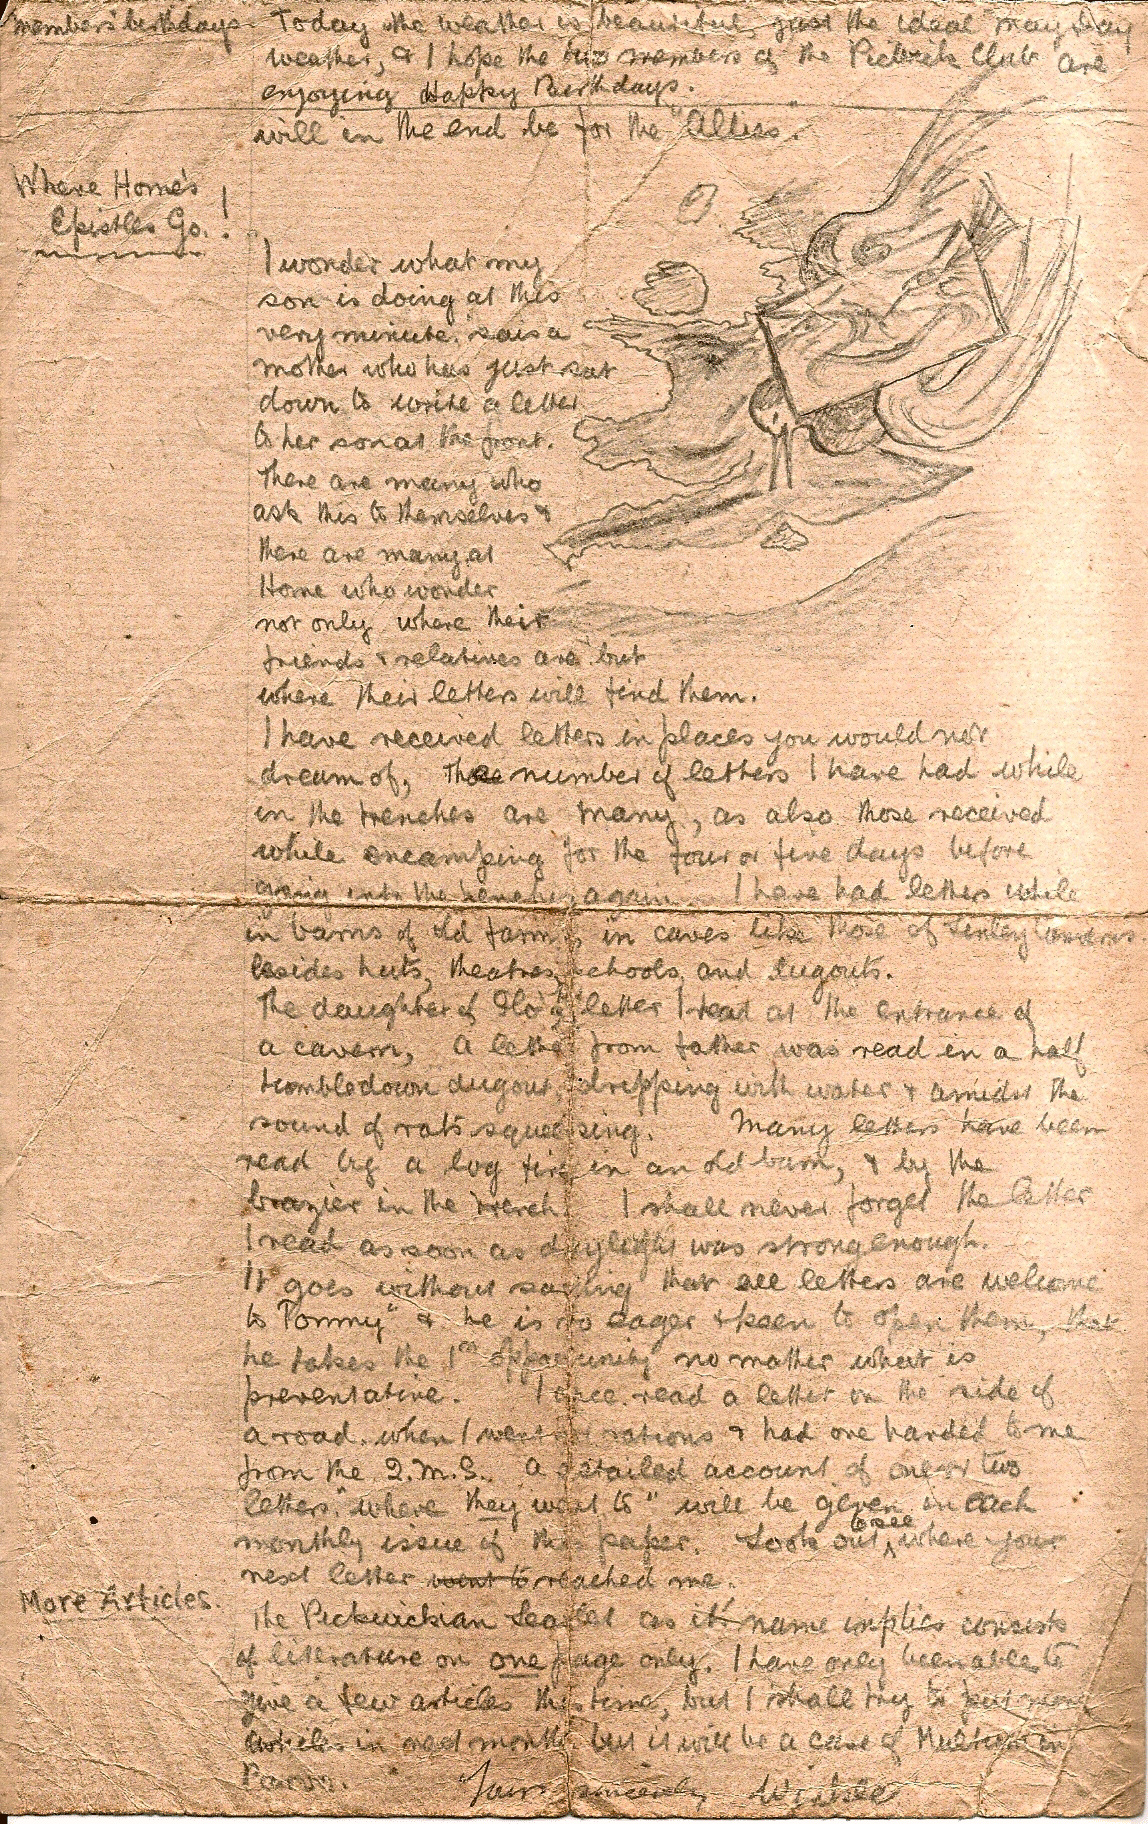 members' birthdays.
Today the weather is beautiful, just the ideal May Day
weather, & I hope the two members of the Pickwick Club are
enjoying Happy Birthdays.
will in the end be for the "Allies".
Where Home's
Epistles Go.!
I wonder what my
son is doing at this
very minute, says a
mother who has just sat
down to write a letter
to her son at the front.
There are many who
ask this to themselves &
there are many at
Home who wonder
not only where their
friends & relatives are but
where their letters will find them.
I have received letters in places you would not
dream of, The number of letters I have had while
in the trenches are many, as also those received
while encamping for the four or five days before
going into the trenches again. I have had letters while
in barns of old farms, in caves like those of
besides huts, theatres, schools, and dugouts.
The daughter of letter I read at the entrance of
a cavern, A letter from father was read in a half
tumbledown dugout, dripping with water & amidst the
sound of rats squeesing. Many letters have been
read by a log fire in an old barn, & by the
brazier in the trench. I shall never forget the letter
I read as soon as daylight was strong enough.
It goes without saying that all letters are welcome
to Tommy" & he is so eager & keen to open them, that
he takes the 1st opportunity no matter what is
preventative. I once read a letter on the side of
a road. when I went rations & had one handed to me
from the Q.M.S. A detailed account of one or two
letters "where they went to" will be given in each
monthly issue of this paper. Look out to see where your
next letter went to reached me.
More Articles.
The Pickwickian Leaflet as it's name implies consists
of literature on one page only. I have only been able to
give a few articles this time, but I shall try to put more
articles in next month. but it will be a case of Multum in
Parvo.
Yours sincerely Winkle